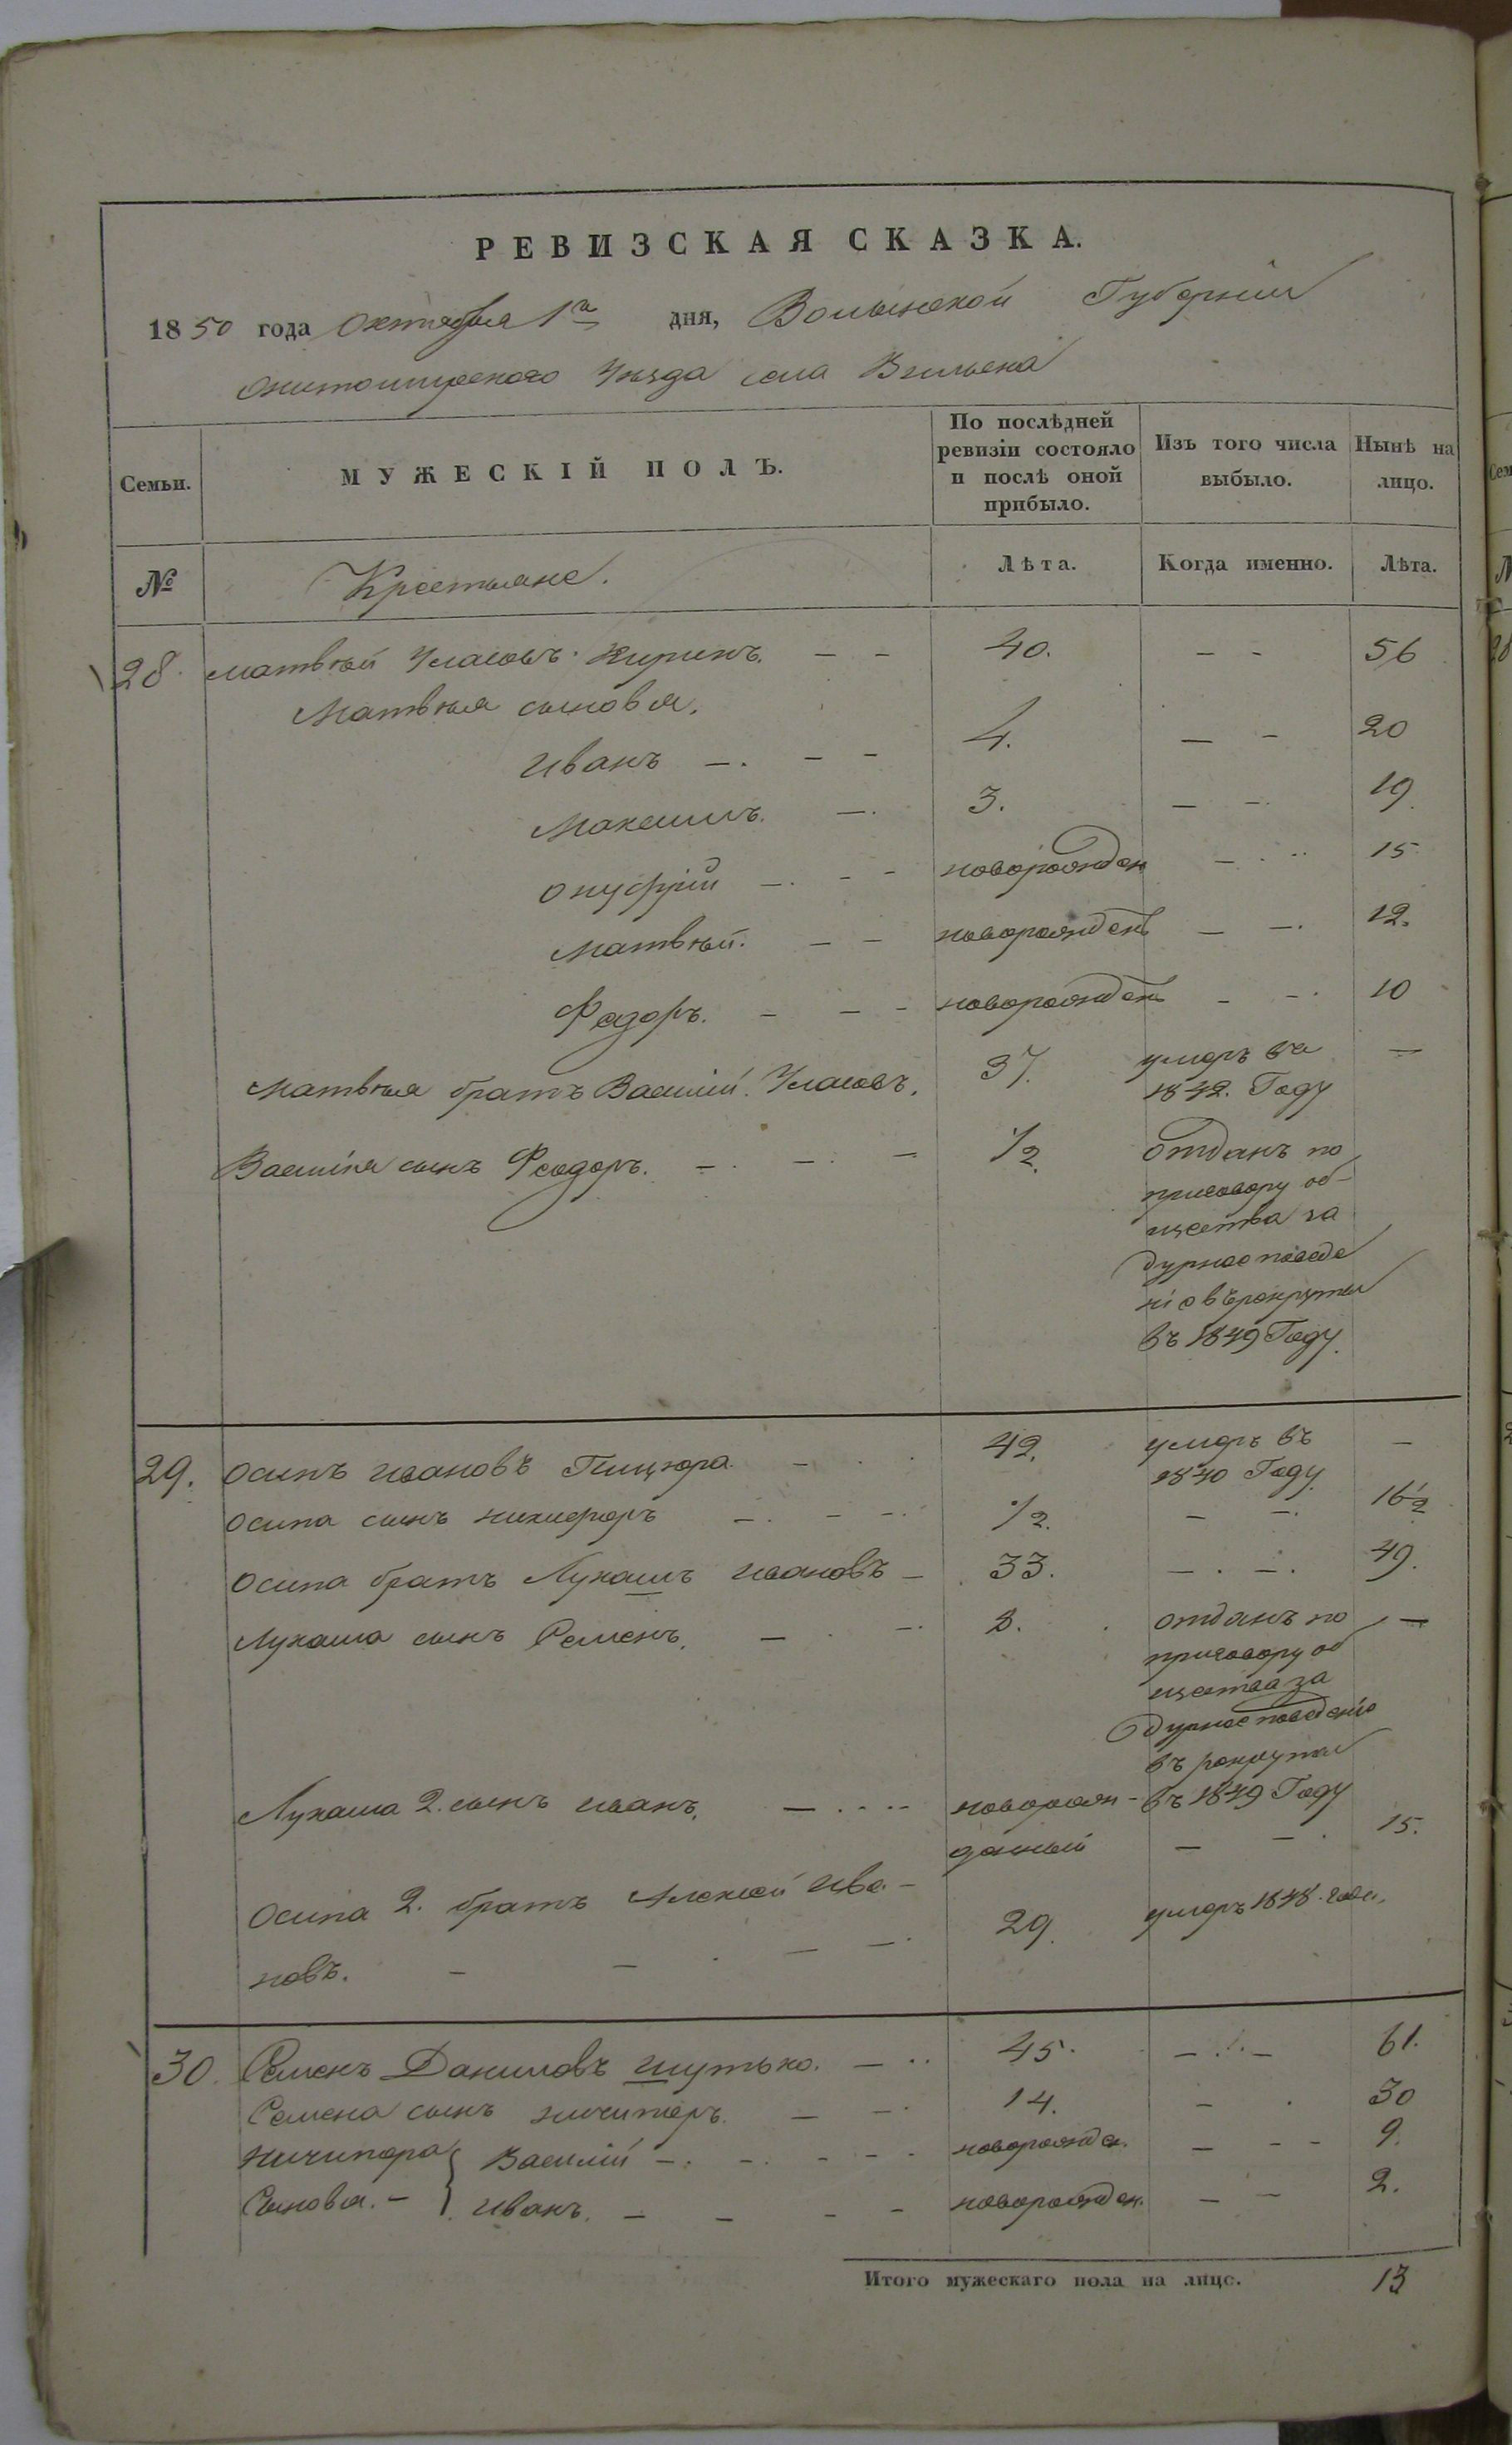 РЕВИЗСКАЯ СКАЗКА.
1850 года Октября 1го дня, Волынской Губерніи
Житомирского Уѣзда села
Семьи. МУЖЕСКІЙ ПОЛЪ. По послѣдней ревизіи состояло и послѣ оной прибыло. Изъ того числа выбыло. Нынѣ на лицо.
№ Крестьяне. Лѣта. Когда именно. Лѣта.
28. Матвѣй Уласовъ — — 40. — — 56
Матвѣя сыновья.
Иванъ —. — — 4. — — 20
Максимъ. —. 3. — —. 19.
Онуфрій —. — — новорожден — 15
Матвѣй. — — новорожденъ — —. 12.
Федоръ. — — — новорожденъ — —. 10
Матвѣя братъ Василій Уласовъ. 37. умеръ въ —
1842. Году
Василія сынъ Феодоръ. —. —. — 1/2. отданъ по
приговору об-
щества за
дурное поведе
ніе въ рекруты
въ 1849 Году.
29. Осипъ Ивановъ Пицюра. — 42. умеръ въ —
1840 Году.
Осипа сынъ Никифоръ —. — —. 1/2. — —. 16 1/2
Осипа братъ Лукашъ Ивановъ — 33. —. —. 49.
Лукаша сынъ Семенъ. — . —. 8. отданъ по —
приговору об
щества за
дурное поведеніе
въ рекруты
Лукаша 2. сынъ Иванъ. — новорож- въ 1849 Году
денный — —. 15.
Осипа 2. братъ Алексей Ива-
новъ. — — . — —. 29. умеръ 1848. года.
30. Семенъ Даниловъ Шутько. — 45. — — 61.
Семена сынъ Ничипоръ. — —. 14. — . 30
Ничипора { Василій —. —. — — новорожден. — — — 9.
Сыновья. — Иванъ. — — — — новорожден. — — 2.
Итого мужескаго пола на лицо. 13